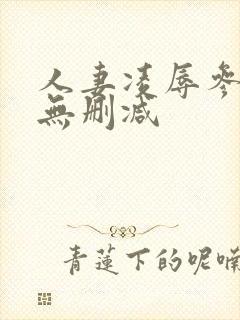 人妻凌辱參
無刪減
青蓮下的呢喃